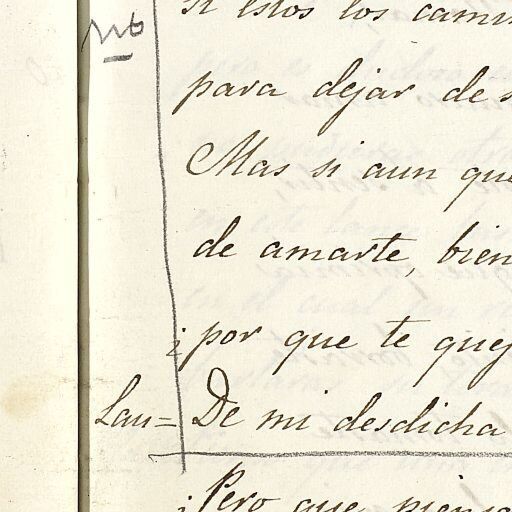 no
si estos los
para dejar de
Mas si aun que
de amarte, bien
¿por que te
Lau= De mi desdicha
¿Pero que